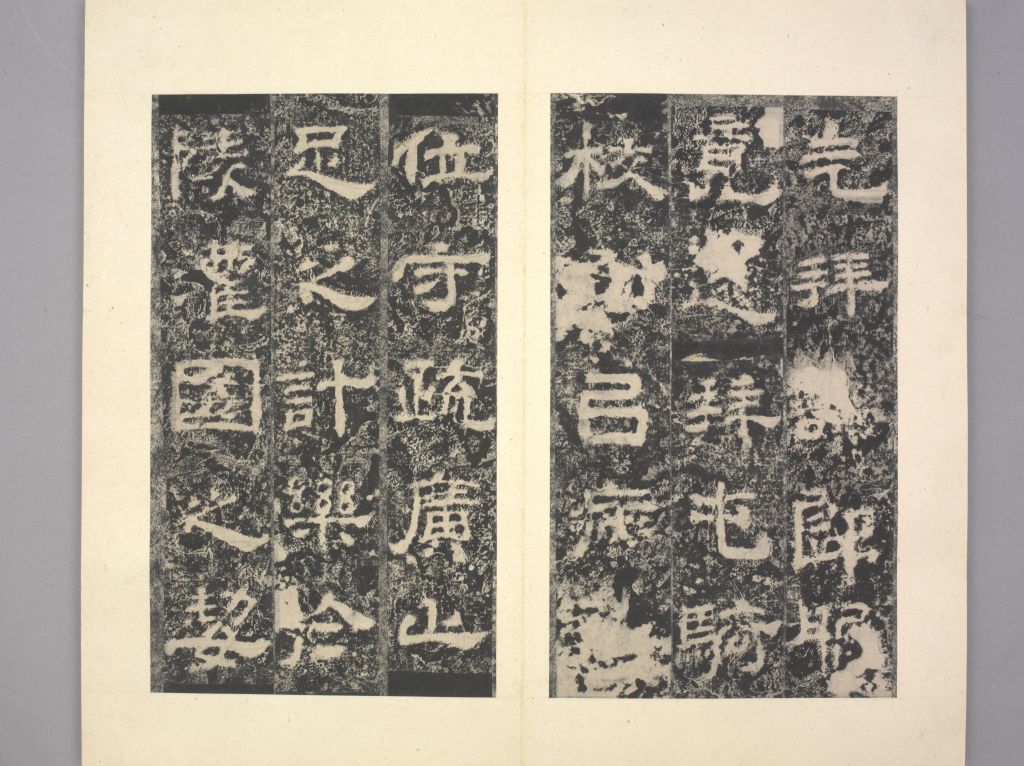 拜郎服
竟還拜屯騎
校尉㠯病
位守疏廣止
足之計樂於
陵灌園之契